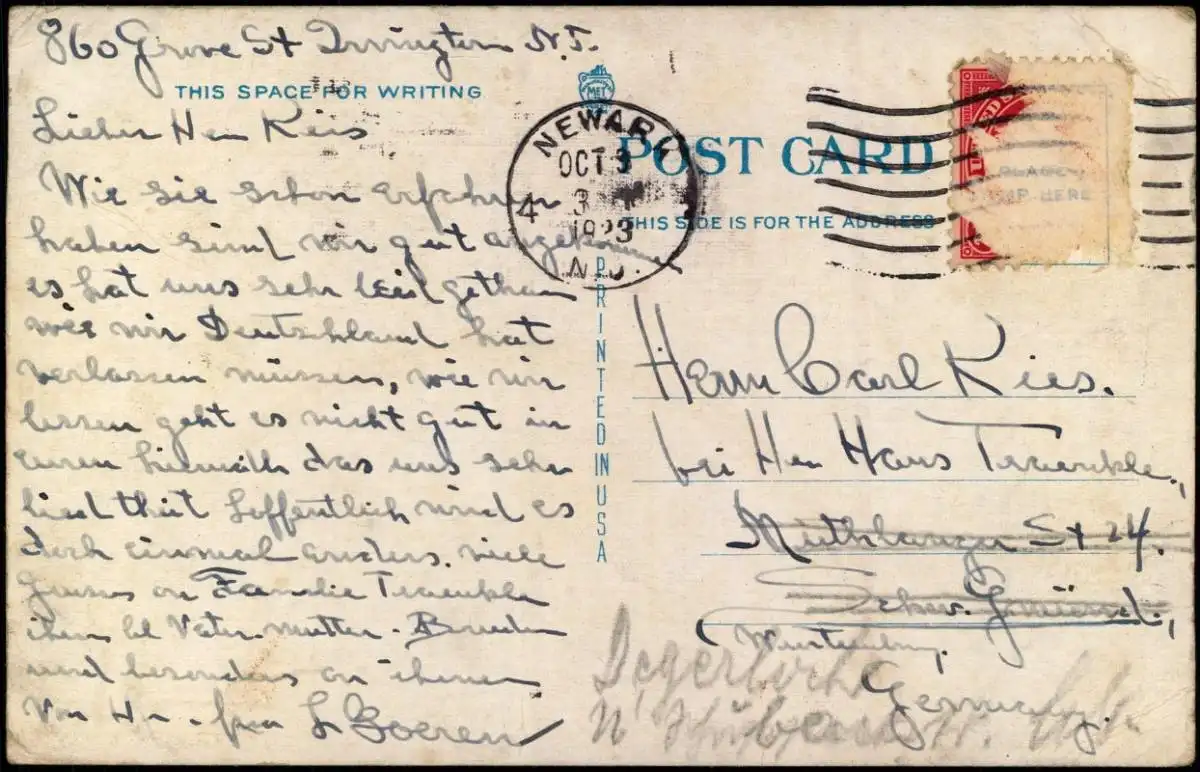 860 Grove St Irvington N.J.
THIS SPACE FOR WRITING
Lieber Herr Kies
Wie sie schon erfahren
haben sind wir gut angekommen
es hat uns sehr leid gethan
wie wir Deutschland hat
verlassen müssen, wie wir
lessen geht es nicht gut in
euren heimath das uns sehr
leid thut hoffentlich wird es
doch einmal anders. viele
Gruss an Familie Traenkle
ihren lb Vater. Mutter. Bruder
und besonders an ihnen
Von Hr. - frau L Boeren
MET
NEWARK
OCT 3
4 3
1923
N.J.
POST CARD
PLACE
STAMP HERE
THIS SIDE IS FOR THE ADDRESS
PRINTED IN USA
Herrn Carl Kies.
bei Herr Hans Traenkle,
Mutlanger St 24.
Schw. Gmünd,
Wurtemberg.
Germany.
Degerloch